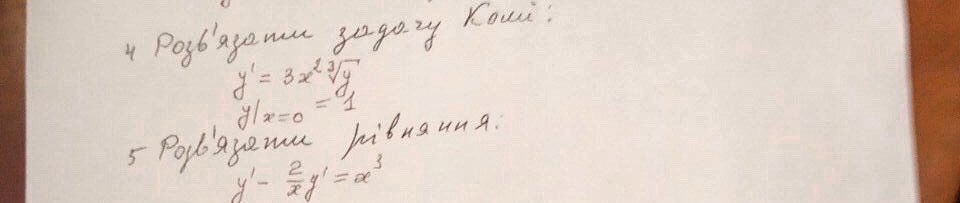 4 Розв'язати задачу Коші:
y' = 3x² ∛y
y|x=0 = 1
5 Розв'язати рівняння:
y' - 2/x y' = x³